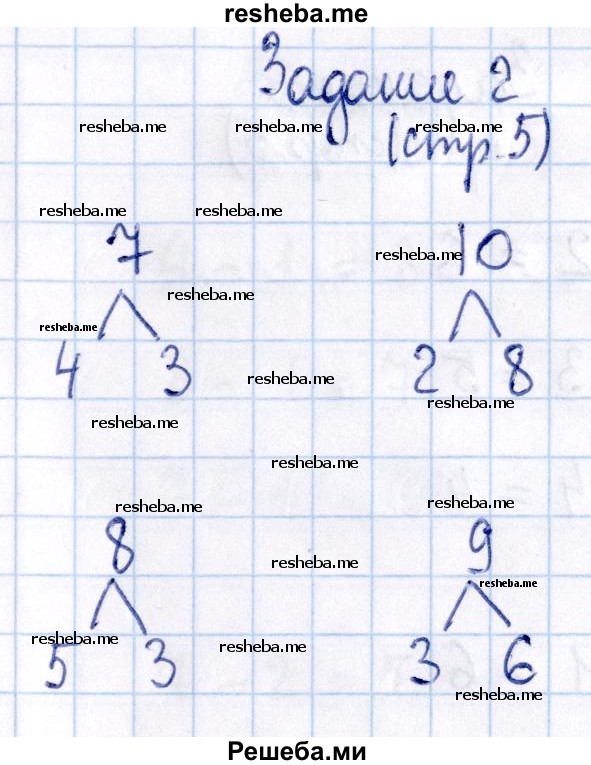 resheba.me
Задание 2
resheba.me resheba.me resheba.me
(стр.5)
resheba.me resheba.me
7 10
resheba.me
resheba.me
resheba.me
4 3 2 8
resheba.me
resheba.me
resheba.me
resheba.me
resheba.me
resheba.me
8 9
resheba.me
resheba.me
resheba.me
resheba.me
5 3 3 6
resheba.me
Решеба.ми